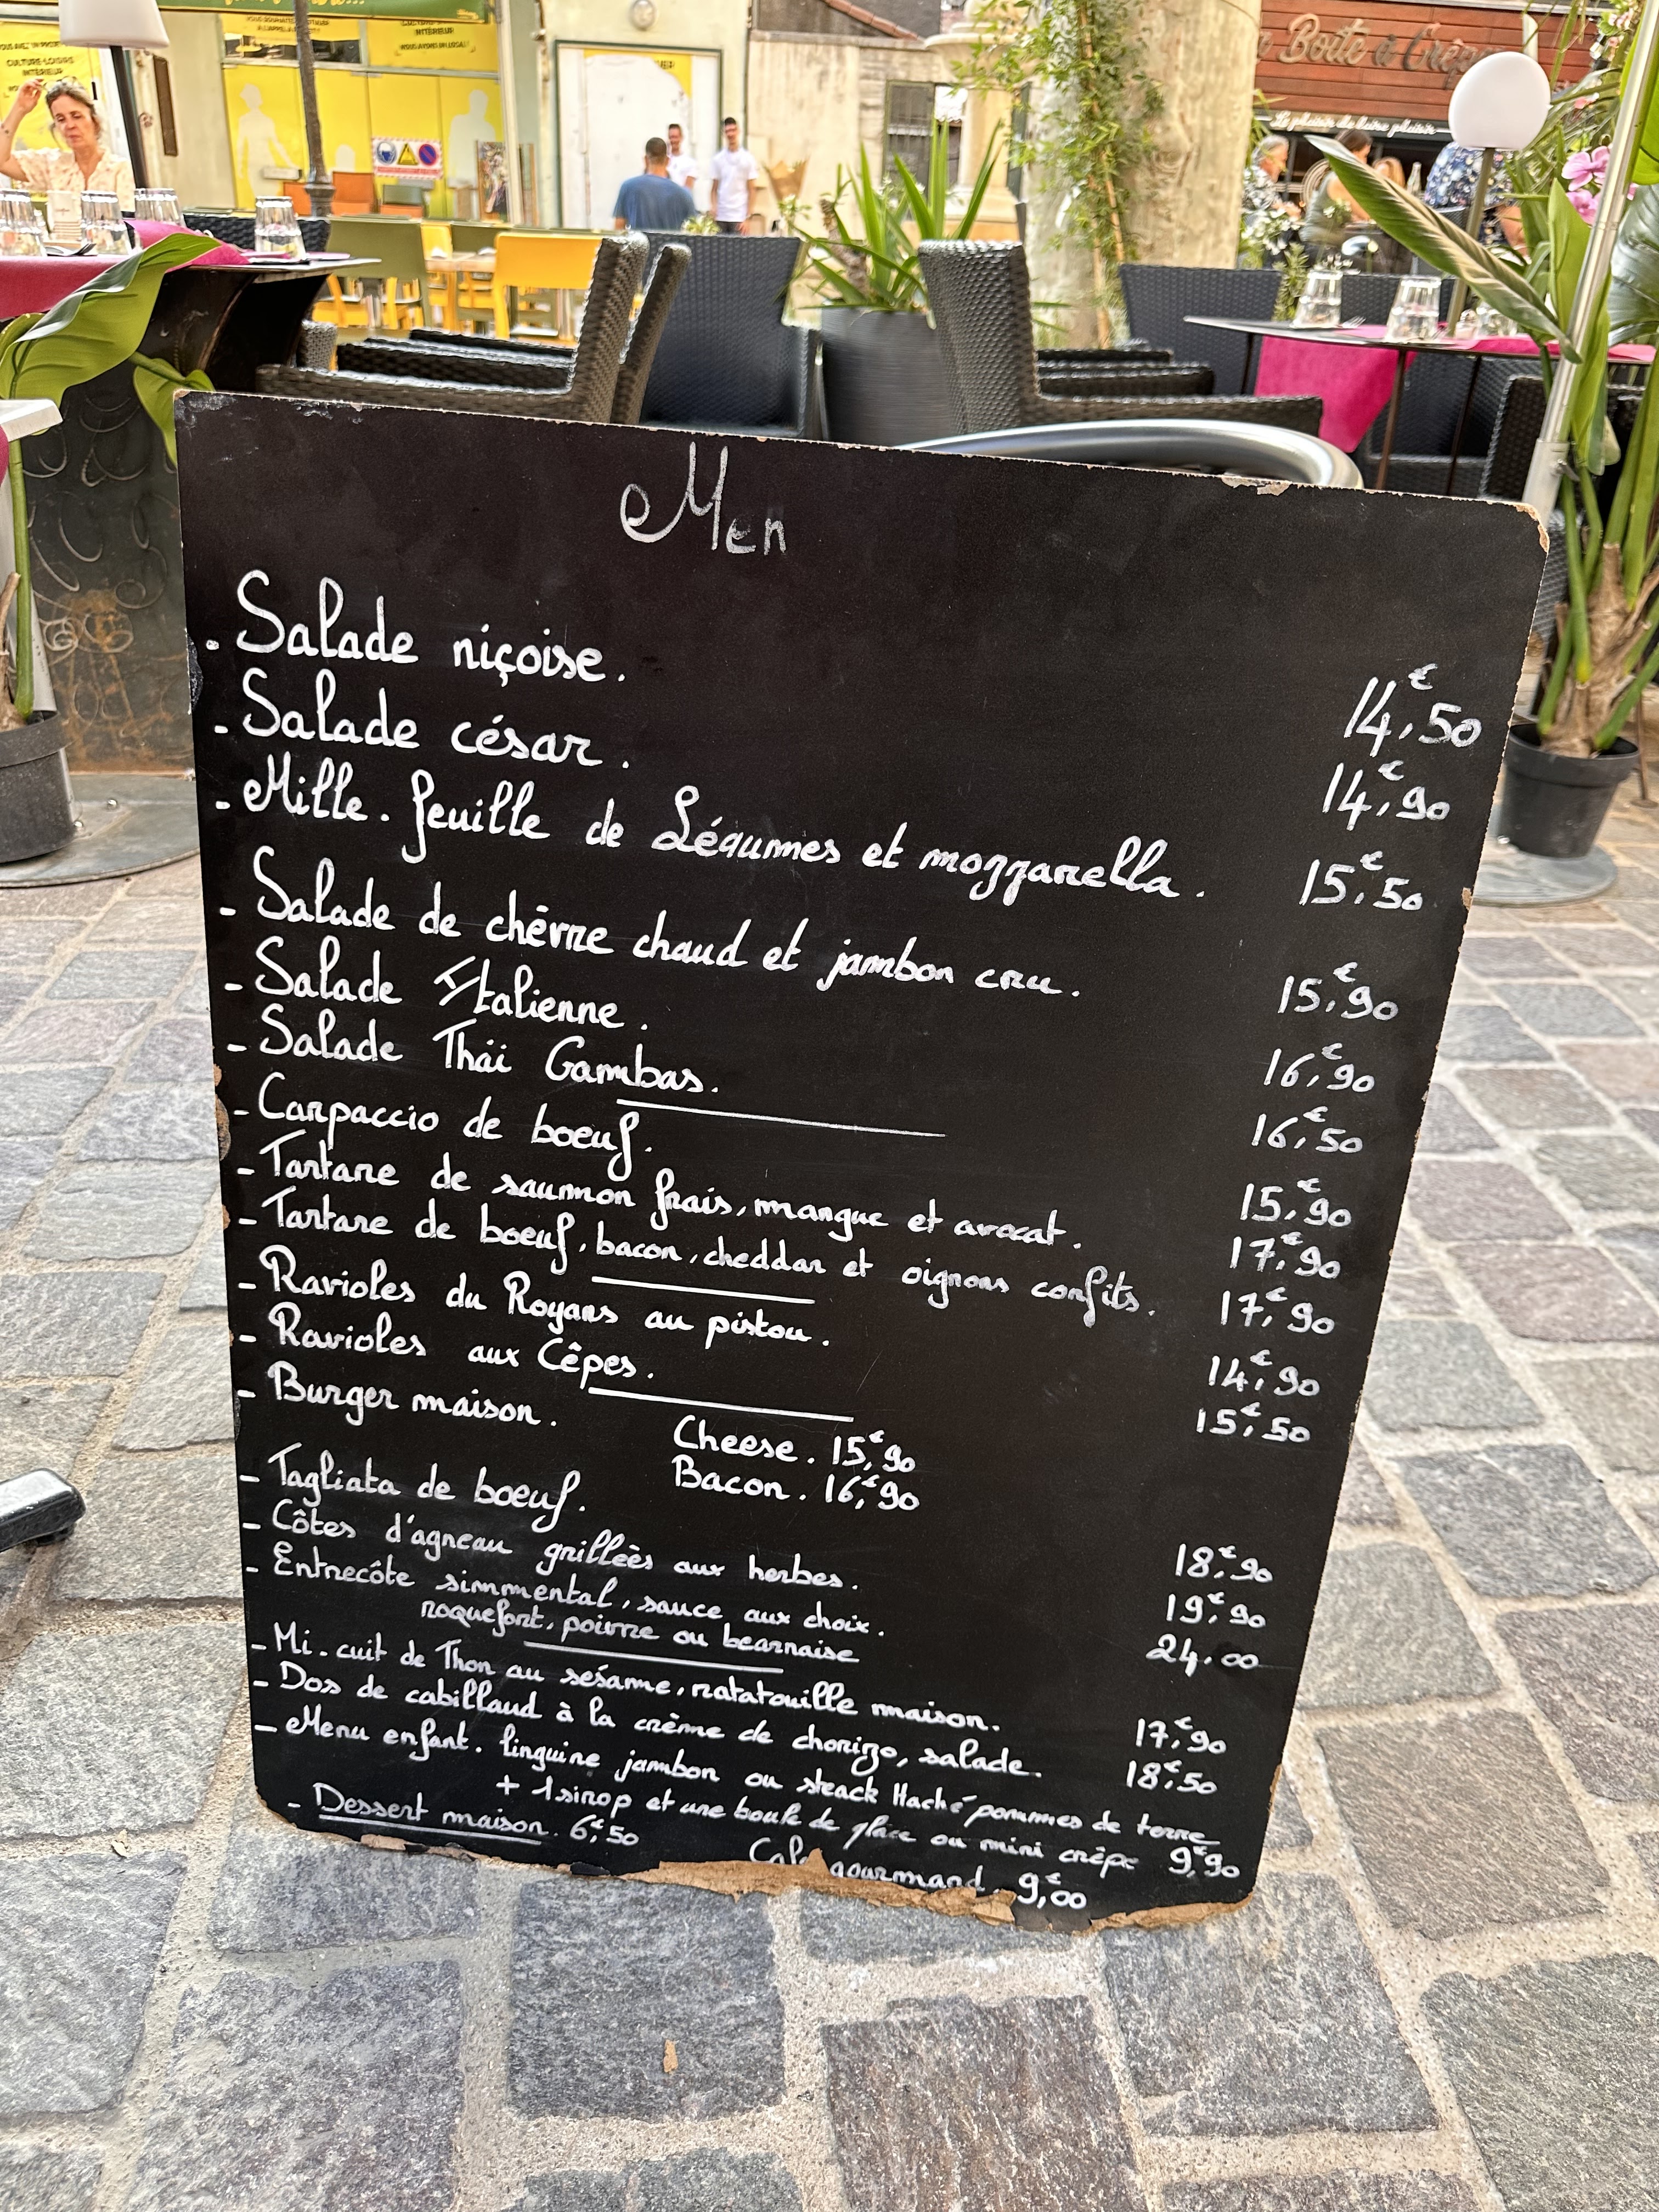 VOUS SOUHAITEZ
CULTURE-LOISIRS
INTÉRIEUR
INTÉRIEUR
VOUS AVONS UN LOCAL!
Boîte à Crêpes
Le plaisir de faire plaisir
Men
. Salade niçoise. 14,€50
- Salade césar. 14,€90
- Mille.feuille de Légumes et mozzarella. 15,€50
- Salade de chèvre chaud et jambon cru. 15,€90
- Salade Italienne. 16,€90
- Salade Thaï Gambas. 16,€50
- Carpaccio de boeuf. 15,€90
- Tartare de saumon frais, mangue et avocat. 17,€90
- Tartare de boeuf, bacon, cheddar et oignons confits. 17,€90
- Ravioles du Royans au pistou. 14,€90
- Ravioles aux Cêpes. 15,€50
- Burger maison. Cheese. 15,€90
Bacon. 16,€90
- Tagliata de boeuf. 18,€90
- Côtes d'agneau grilleès aux herbes. 19,€90
- Entrecôte simmental, sauce aux choix. 24.00
roquefort, poivre ou bearnaise
- Mi.cuit de Thon au sesame, ratatouille maison. 17,€90
- Dos de cabillaud à la crème de chorizo, salade. 18,€50
- Menu enfant. linguine jambon ou steack Haché pommes de terre
+ 1 sirop et une boule de glace ou mini crêpe 9,€90
- Dessert maison. 6,€50
Café gourmand 9,€00